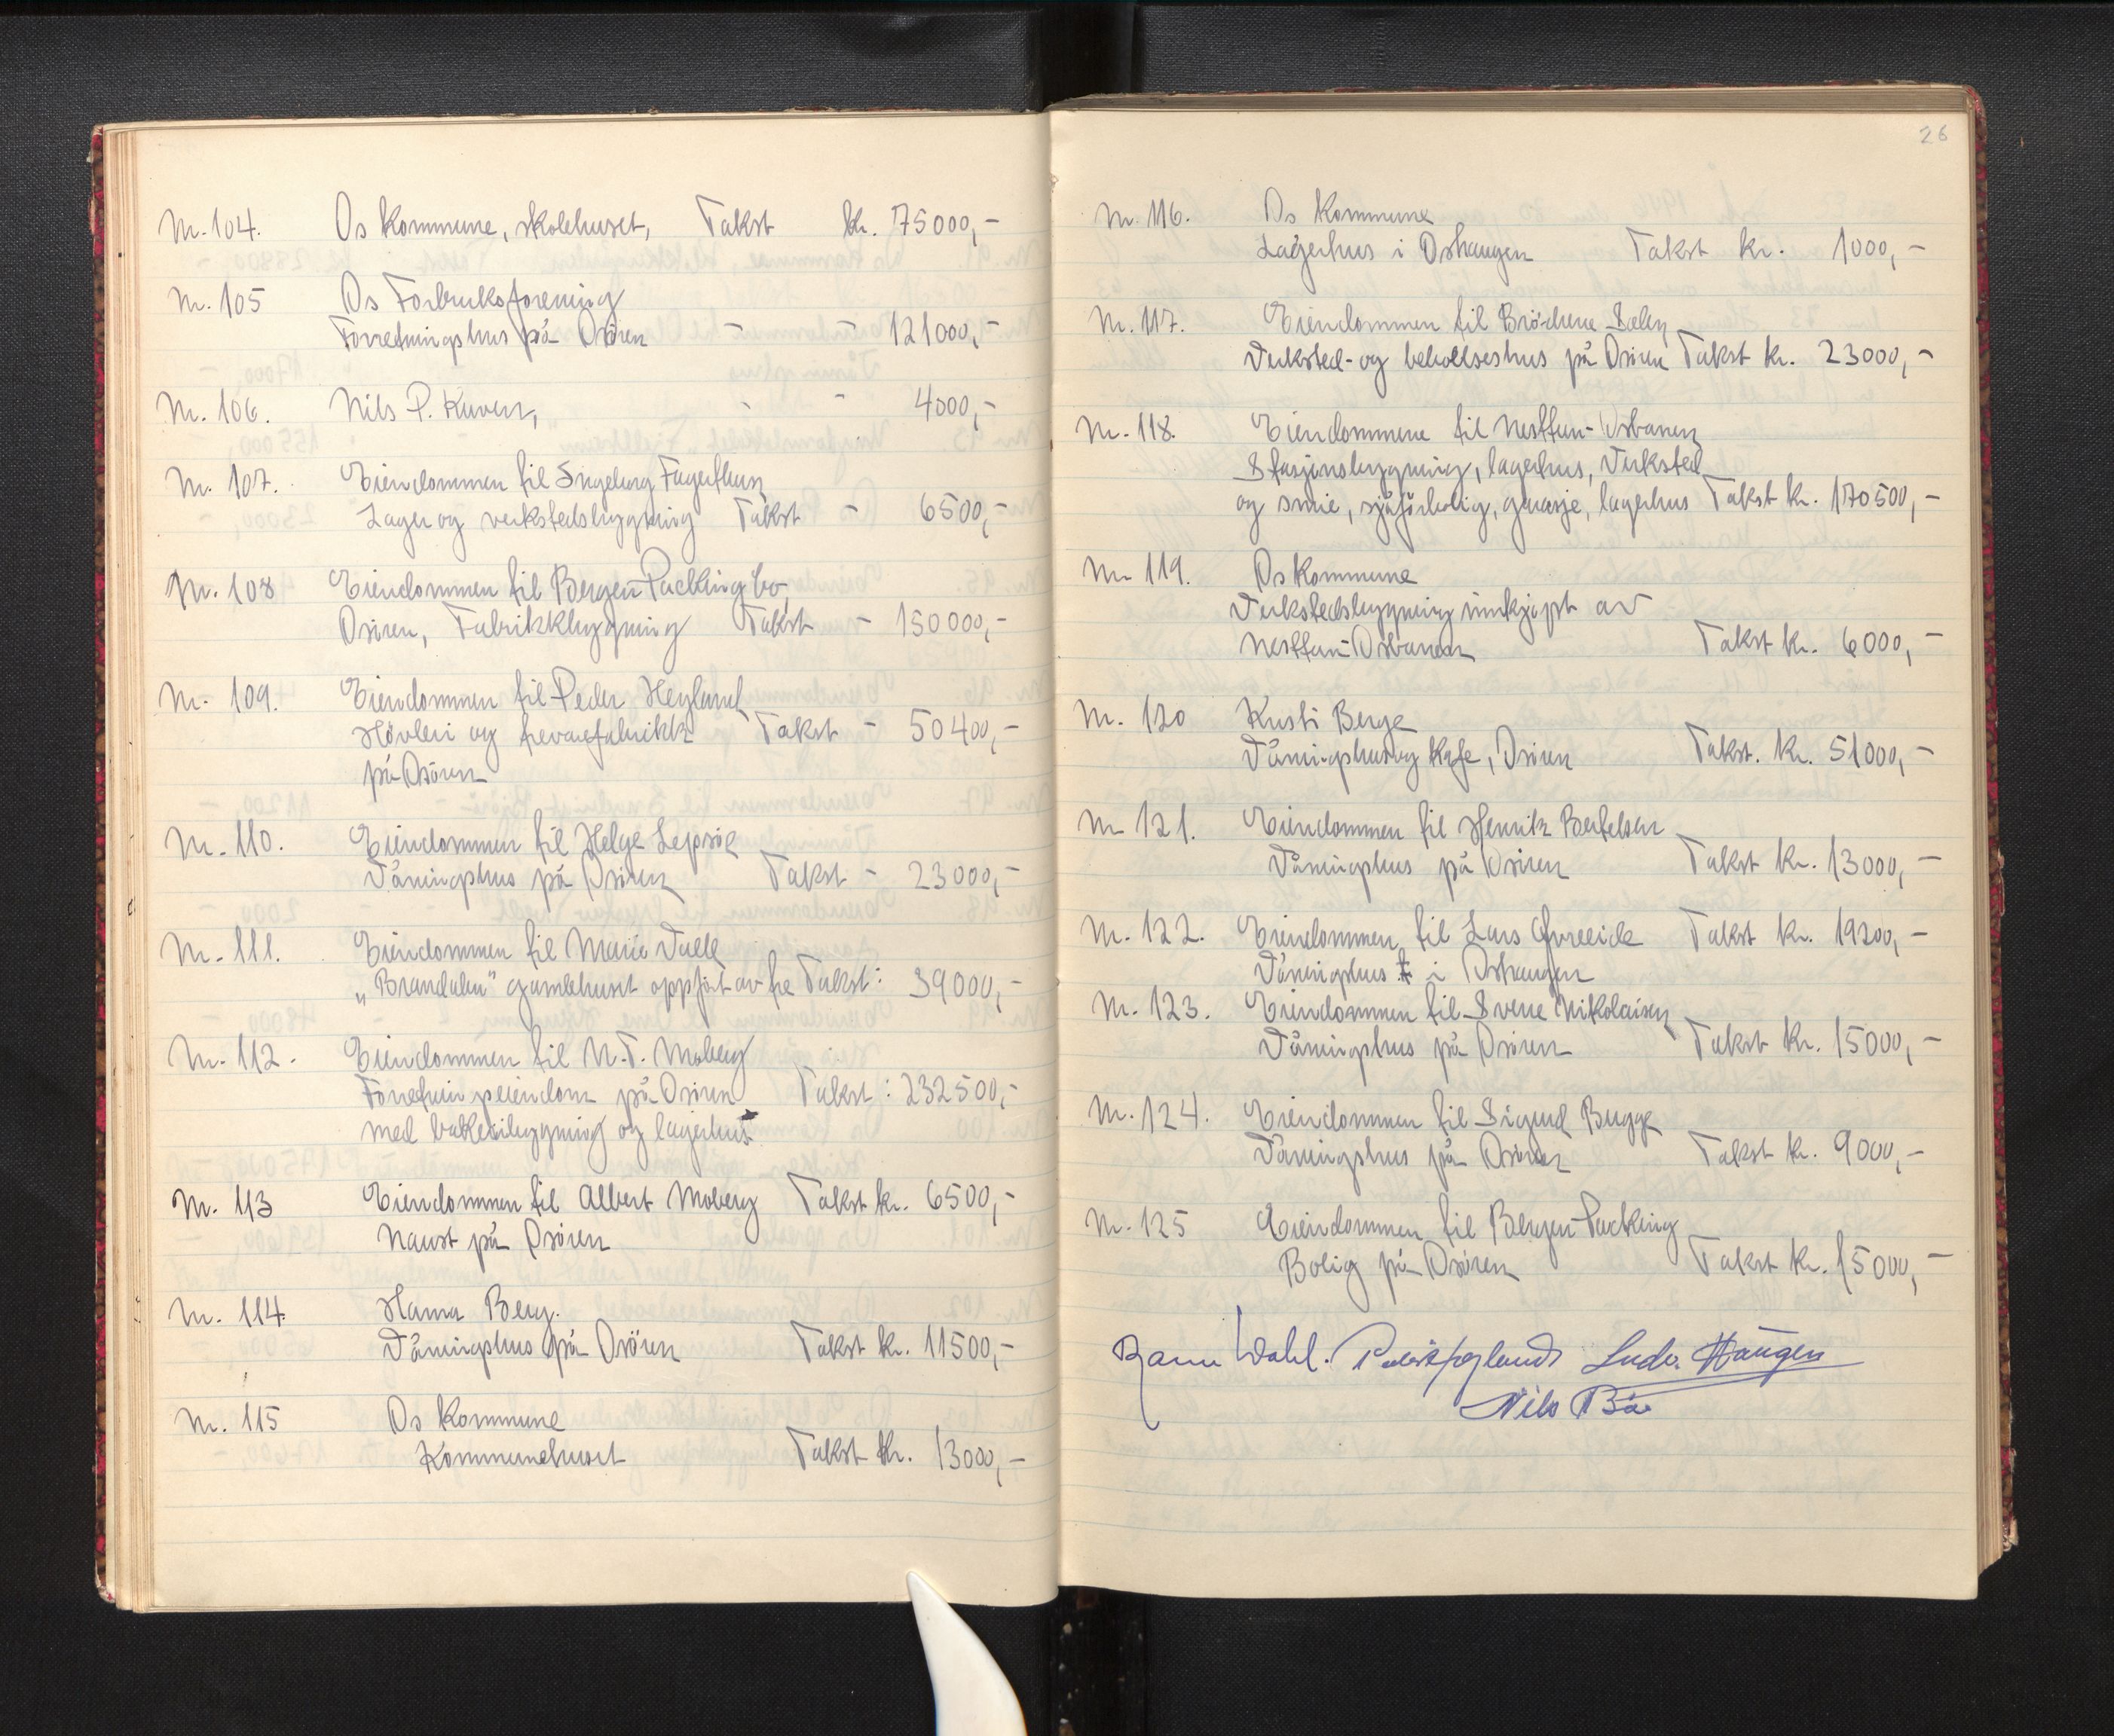 Nr. 104. Os Kommune, skolehuset, Takst kr. 75000,-
Nr. 105 Os Forbruksforening
Forretningshus på Osören - - 121000,-
Nr. 106. Nils P. Kuven, - - 4000,-
Nr. 107. Eiendommen til Ingeborg Fagertun
Lager og verkstedsbygning Takst - 6500,-
Nr. 108 Eiendommen til Bergen Packing Co
Osören, Fabrikkbygning Takst - 150000,-
Nr. 109. Eiendommen til Peder Hegland
Hövleri og trevarefabrikk Takst - 50400,-
på Osören
Nr. 110. Eiendommen til Helge Lepsöe
Våningshus på Osören Takst - 23000,-
Nr. 111. Eiendommen til Maria Valle
„Brandalen" gamlehuset oppfört av tre Takst: 39000,-
Nr. 112. Eiendommen til N. T. Moberg
Forretningseiendom på Osören Takst: 232500,-
med bakeribygning og lagerhus
Nr. 113 Eiendommen til Albert Moberg Takst kr. 6500,-
Naust på Osören
Nr. 114. Hanna Berg.
Våningshus på Osören Takst kr. 11500,-
Nr. 115 Os Kommune
Kommunehuset Takst kr. 13000,-
26
Nr. 116. Os Kommune
Lagerhus i Oshaugen Takst kr. 1000,-
Nr. 117. Eiendommen til Brödrene Sælen
Verksted- og beboelseshus på Osören Takst kr. 23000,-
Nr. 118. Eiendommene til Nesttun-Osbanen
Stasjonsbygning, lagerhus, Verksted
og smie, sjåförbolig, garasje, lagerhus Takst kr. 170500,-
Nr. 119. Os Kommune
Verkstedsbygning innkjöpt av
Nesttun-Osbanen Takst kr. 6000,-
Nr. 120 Kristi Berge
Våningshus og Kafe, Osören Takst. kr. 51000,-
Nr. 121. Eiendommen til Henrik Bertelsen
Våningshus på Osören Takst kr. 13000,-
Nr. 122. Eiendommen til Lars Øvreeide Takst kr. 19200,-
Våningshus i Oshaugen
Nr. 123. Eiendommen til Sverre Nikolaisen
Våningshus på Osören Takst kr. 15000,-
Nr. 124. Eiendommen til Sigurd Bugge
Våningshus på Osören Takst kr. 9000,-
Nr. 125 Eiendommen til Bergen Packing
Bolig på Osören Takst kr. 15000,-
Wahl. Ludv. Haugen
Nils Bö